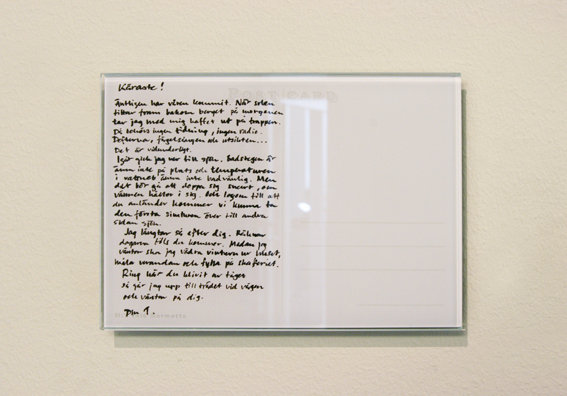 Käraste!
Äntligen har våren kommit. När solen
tittar fram bakom berget på morgonen
tar jag med mig kaffet ut på trappen.
Då behövs ingen tidning, ingen radio.
Dofterna, fågelsången och utsikten...
Det är underbart.
Igår gick jag ner till sjön. Badstegen är
ännu inte på plats och temperaturen
i vattnet ännu inte badvänlig. Men
det bör gå att doppa sig snart, om
värmen håller i sig. Och lagom till att
du anländer kommer vi kunna ta
den första simturen över till andra
sidan sjön.
Jag längtar så efter dig. Räknar
dagarna tills du kommer. Medan jag
väntar ska jag vädra vintern ur huset,
måla verandan och fylla på skafferiet.
Ring när du blivit av tåget
så går jag upp till trädet vid vägen
och väntar på dig.
Din T.
POST CARD